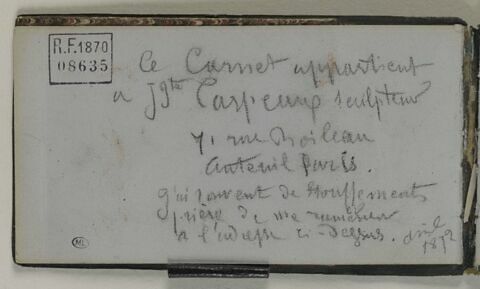 R.F.1870
08635
Ce Carnet appartient
a JBte Carpeaux sculpteur
71 rue Boileau
Auteuil Paris.
J'ai souvent de étouffements
prière de me ramener
a l'adresse ci-dessus. avril
1872
ML